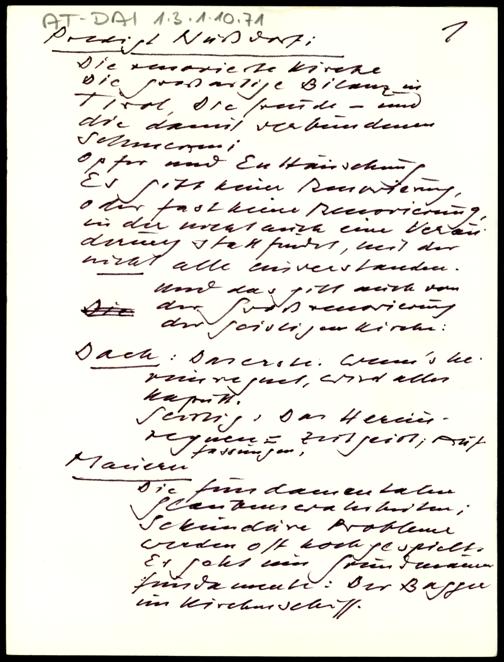 AT-DAI 1.3.1.10.71
1
Predigt Nußdorf:
Die renovierte Kirche
Die großartige Bilanz in
Tirol, Die Freude – und
die damit verbundenen
Schmerzen:
Opfer und Enttäuschung
Es gibt keine Renovierung,
oder fast keine Renovierung,
in der nicht auch eine Verän
derung stattfindet, mit der
nicht alle einverstanden.
Und das gilt auch von
Die der Großrenovierung
der geistigen Kirche:
Dach: Das erste. Wenn's he-
reinregnet, wird alles
kaputt.
Geistig: Das Herein-
regnen = Zeitgeist, Auf
fassungen,
Mauern
Die fundamentalen
Glaubenswahrheiten;
Sekundäre Probleme
werden oft hochgespielt.
Es geht um Grundmauern
Fundamente: Der Bagger
im Kirchenschiff.